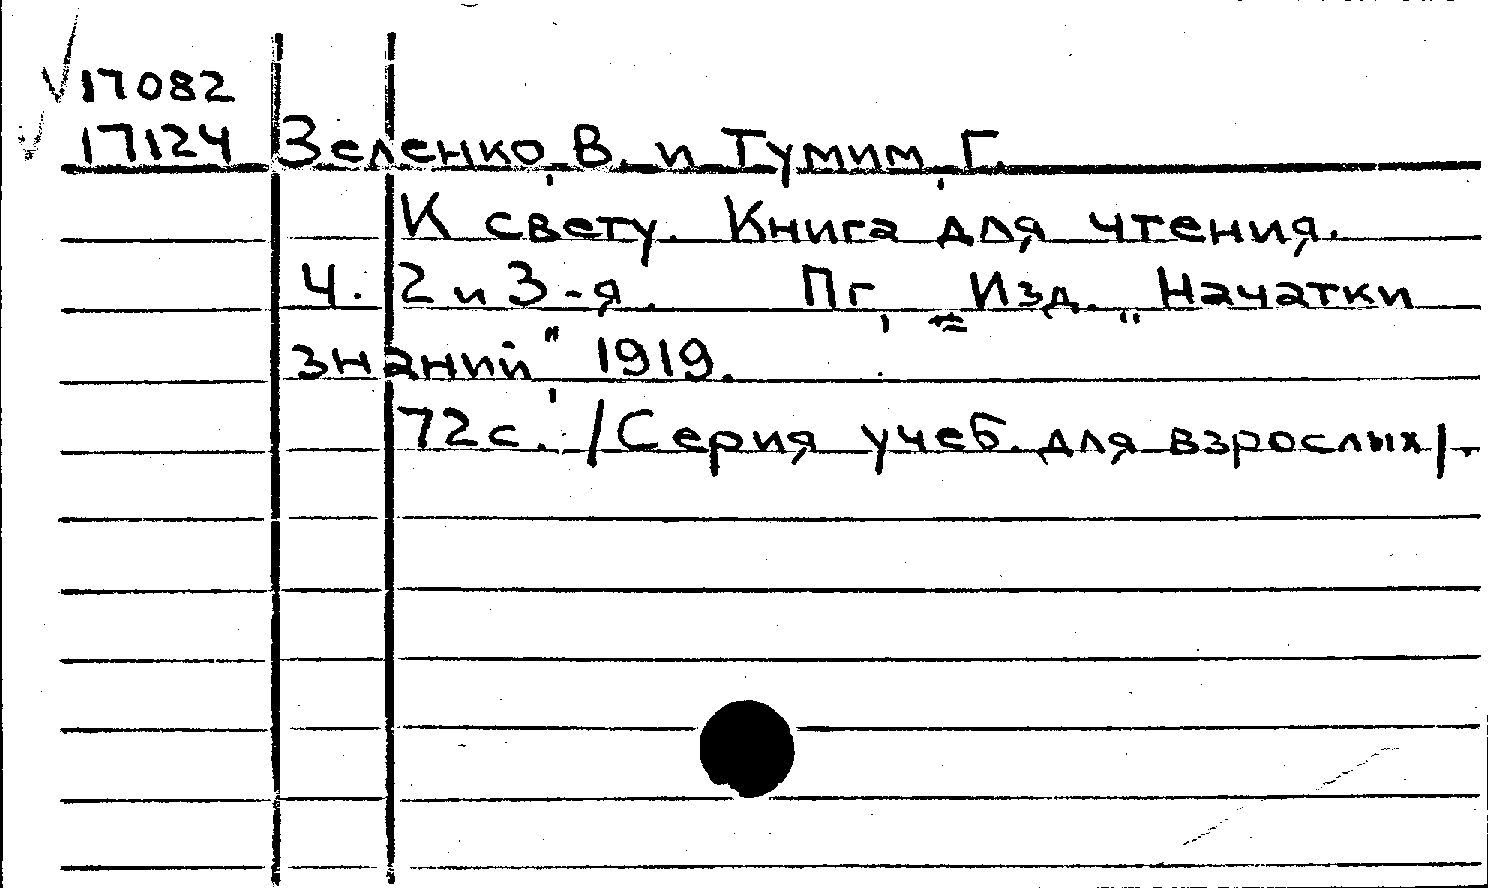 17082
17124 Зеленко, В. и Тумим, Г.
К свету. Книга для чтения.
Ч. 2 и 3-я. Пг, Изд. „Начатки
знаний", 1919.
72с. /Серия учеб. для взрослых/.